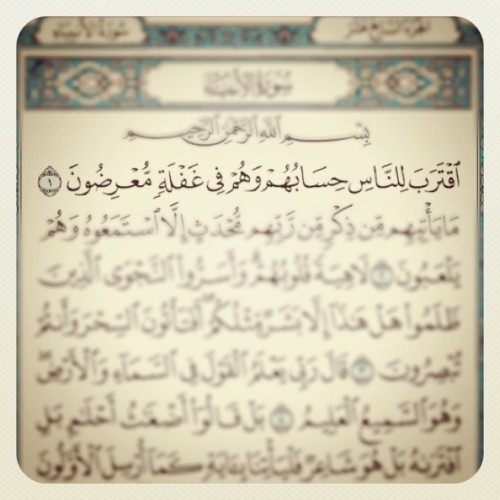 سورة الأنبياء الجزء السابع عشر
سورة الأنبياء
بِسْمِ اللَّهِ الرَّحْمَٰنِ الرَّحِيمِ
ٱقْتَرَبَ لِلنَّاسِ حِسَابُهُمْ وَهُمْ فِى غَفْلَةٍ مُّعْرِضُونَ ١
مَا يَأْتِيهِم مِّن ذِكْرٍ مِّن رَّبِّهِم مُّحْدَثٍ إِلَّا ٱسْتَمَعُوهُ وَهُمْ
يَلْعَبُونَ ٢ لَاهِيَةً قُلُوبُهُمْ وَأَسَرُّوا۟ ٱلنَّجْوَى ٱلَّذِينَ
ظَلَمُوا۟ هَلْ هَٰذَآ إِلَّا بَشَرٌ مِّثْلُكُمْ أَفَتَأْتُونَ ٱلسِّحْرَ وَأَنتُمْ
تُبْصِرُونَ ٣ قَالَ رَبِّى يَعْلَمُ ٱلْقَوْلَ فِى ٱلسَّمَآءِ وَٱلْأَرْضِ
وَهُوَ ٱلسَّمِيعُ ٱلْعَلِيمُ ٤ بَلْ قَالُوٓا۟ أَضْغَٰثُ أَحْلَٰمٍ بَلِ
ٱفْتَرَىٰهُ بَلْ هُوَ شَاعِرٌ فَلْيَأْتِنَا بِـَٔايَةٍ كَمَآ أُرْسِلَ ٱلْأَوَّلُونَ